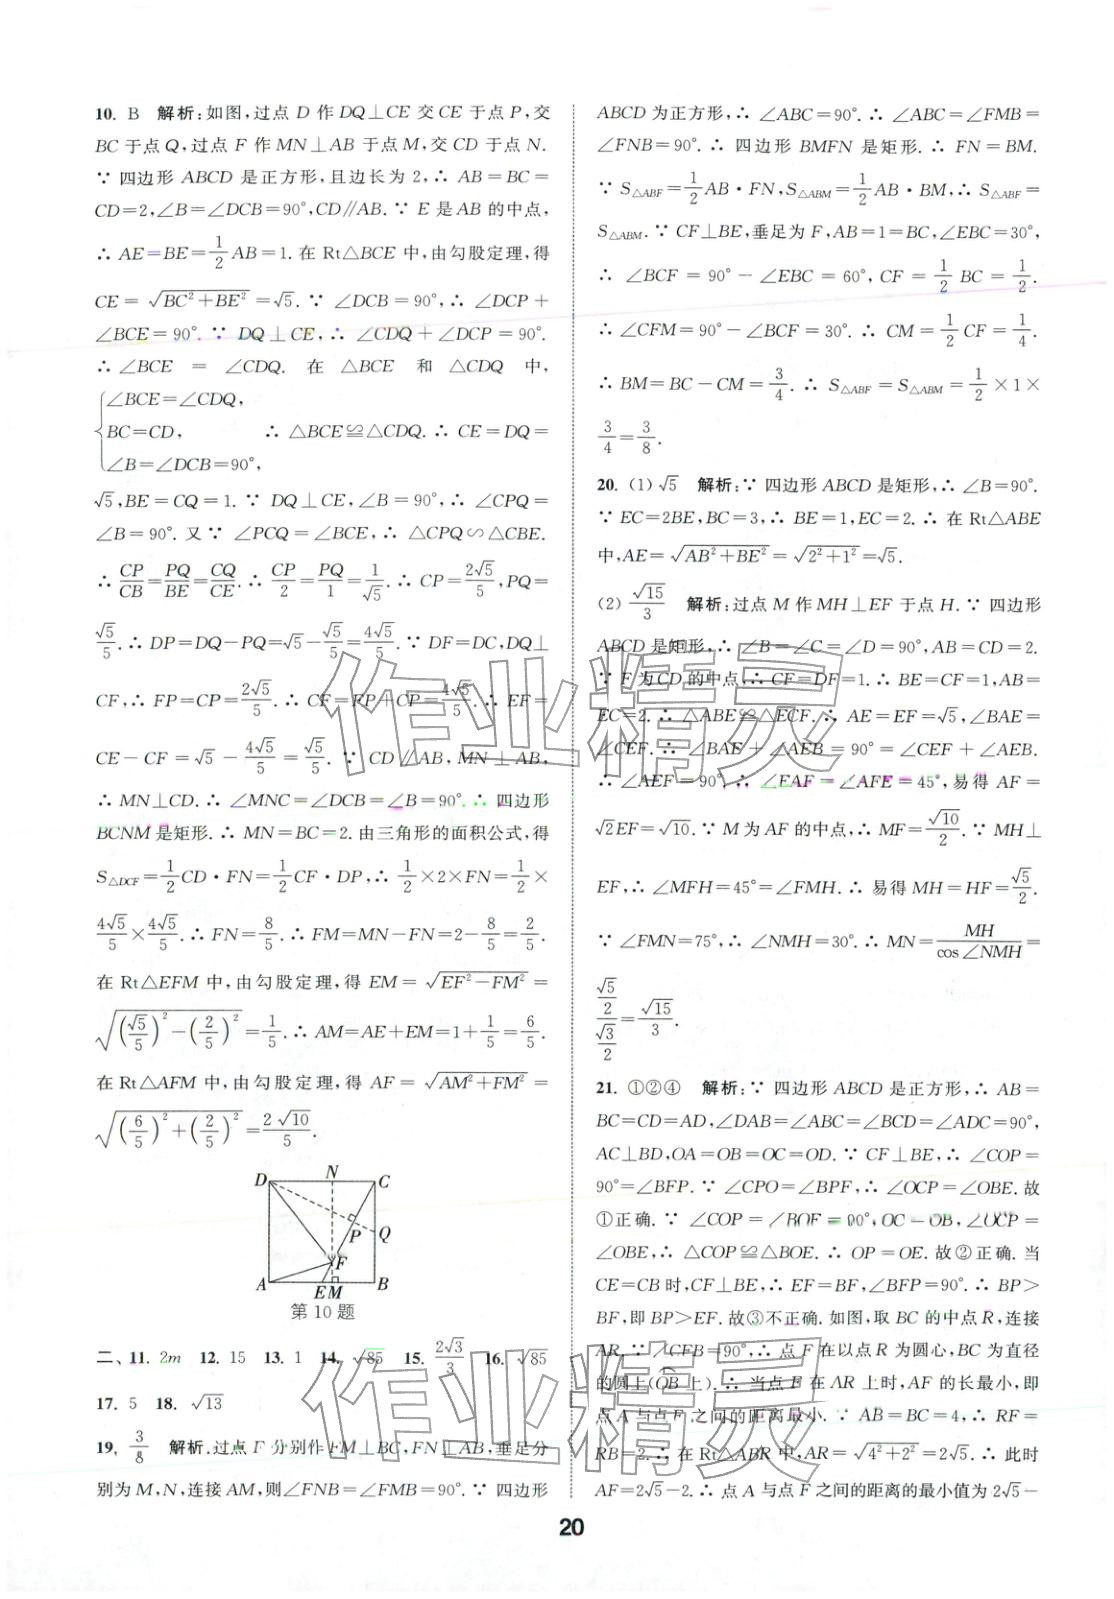 10. B 解析:如图,过点 D 作 DQ⊥CE 交 CE 于点 P,交
BC 于点 Q,过点 F 作 MN⊥AB 于点 M,交 CD 于点 N.
∵ 四边形 ABCD 是正方形,且边长为 2,∴ AB=BC=
CD=2,∠B=∠DCB=90°,CD∥AB.∵ E 是 AB 的中点,
∴ AE=BE=1/2 AB=1.在 Rt△BCE 中,由勾股定理,得
CE=√(BC²+BE²)=√5.∵ ∠DCB=90°,∴ ∠DCP+
∠BCE=90°.∵ DQ⊥CE,∴ ∠CDQ+∠DCP=90°.
∴ ∠BCE=∠CDQ.在 △BCE 和 △CDQ 中,
∠BCE=∠CDQ,
BC=CD, ∴ △BCE≌△CDQ.∴ CE=DQ=
∠B=∠DCB=90°,
√5,BE=CQ=1.∵ DQ⊥CE,∠B=90°,∴ ∠CPQ=
∠B=90°.又∵ ∠PCQ=∠BCE,∴ △CPQ∽△CBE.
∴ CP/CB=PQ/BE=CQ/CE.∴ CP/2=PQ/1=1/√5.∴ CP=2√5/5,PQ=
√5/5.∴ DP=DQ-PQ=√5-√5/5=4√5/5.∵ DF=DC,DQ⊥
CF,∴ FP=CP=2√5/5.∴ CF=FP+CP=4√5/5.∴ EF=
CE-CF=√5-4√5/5=√5/5.∵ CD∥AB,MN⊥AB,
∴ MN⊥CD.∴ ∠MNC=∠DCB=∠B=90°.∴ 四边形
BCNM 是矩形.∴ MN=BC=2.由三角形的面积公式,得
S△DCF=1/2 CD·FN=1/2 CF·DP,∴ 1/2×2×FN=1/2×
4√5/5×4√5/5.∴ FN=8/5.∴ FM=MN-FN=2-8/5=2/5.
在 Rt△EFM 中,由勾股定理,得 EM=√(EF²-FM²)=
√((√5/5)²-(2/5)²)=1/5.∴ AM=AE+EM=1+1/5=6/5.
在 Rt△AFM 中,由勾股定理,得 AF=√(AM²+FM²)=
√((6/5)²+(2/5)²)=2√10/5.
D N C
P Q
F
A E M B
第 10 题
二、11. 2m 12. 15 13. 1 14. √85 15. 2√3/3 16. √85
17. 5 18. √13
19. 3/8 解析:过点 F 分别作 FM⊥BC,FN⊥AB,垂足分
别为 M,N,连接 AM,则∠FNB=∠FMB=90°.∵ 四边形
ABCD 为正方形,∴ ∠ABC=90°.∴ ∠ABC=∠FMB=
∠FNB=90°.∴ 四边形 BMFN 是矩形.∴ FN=BM.
∵ S△ABF=1/2 AB·FN,S△ABM=1/2 AB·BM,∴ S△ABF=
S△ABM.∵ CF⊥BE,垂足为 F,AB=1=BC,∠EBC=30°,
∴ ∠BCF=90°-∠EBC=60°,CF=1/2 BC=1/2.
∴ ∠CFM=90°-∠BCF=30°.∴ CM=1/2 CF=1/4.
∴ BM=BC-CM=3/4.∴ S△ABF=S△ABM=1/2×1×
3/4=3/8.
20. (1) √5 解析:∵ 四边形 ABCD 是矩形,∴ ∠B=90°.
∵ EC=2BE,BC=3,∴ BE=1,EC=2.∴ 在 Rt△ABE
中,AE=√(AB²+BE²)=√(2²+1²)=√5.
(2) √15/3 解析:过点 M 作 MH⊥EF 于点 H.∵ 四边形
ABCD 是矩形,∴ ∠B=∠C=∠D=90°,AB=CD=2.
∵ F 为 CD 的中点,∴ CF=DF=1.∴ BE=CF=1,AB=
EC=2.∴ △ABE≌△ECF.∴ AE=EF=√5,∠BAE=
∠CEF.∴ ∠BAE+∠AEB=90°=∠CEF+∠AEB.
∴ ∠AEF=90°.∴ ∠EAF=∠AFE=45°,易得 AF=
√2EF=√10.∵ M 为 AF 的中点,∴ MF=√10/2.∵ MH⊥
EF,∴ ∠MFH=45°=∠FMH.∴ 易得 MH=HF=√5/2.
∵ ∠FMN=75°,∴ ∠NMH=30°.∴ MN=MH/cos∠NMH=
(√5/2)/(√3/2)=√15/3.
21. ①②④ 解析:∵ 四边形 ABCD 是正方形,∴ AB=
BC=CD=AD,∠DAB=∠ABC=∠BCD=∠ADC=90°,
AC⊥BD,OA=OB=OC=OD.∵ CF⊥BE,∴ ∠COP=
90°=∠BFP.∵ ∠CPO=∠BPF,∴ ∠OCP=∠OBE.故
①正确.∵ ∠COP=∠BOE=90°,OC=OB,∠OCP=
∠OBE,∴ △COP≌△BOE.∴ OP=OE.故②正确.当
CE=CB 时,CF⊥BE,∴ EF=BF,∠BFP=90°.∴ BP>
BF,即 BP>EF.故③不正确.如图,取 BC 的中点 R,连接
AR.∵ ∠CFB=90°,∴ 点 F 在以点 R 为圆心,BC 为直径
的圆上(OB 上).∴ 当点 F 在 AR 上时,AF 的长最小,即
点 A 与点 F 之间的距离最小.∵ AB=BC=4,∴ RF=
RB=2.∴ 在 Rt△ABR 中,AR=√(4²+2²)=2√5.∴ 此时
AF=2√5-2.∴ 点 A 与点 F 之间的距离的最小值为 2√5-
20
作业精灵
作业精灵